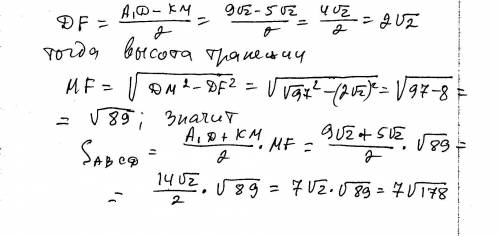 DF = (A₁D − KM)/2 = (9√2 − 5√2)/2 = 4√2/2 = 2√2
тогда высота трапеции
MF = √(DM² − DF²) = √(√97² − (2√2)²) = √(97−8) =
= √89; значит
S_ABCD = (A₁D + KM)/2 · MF = (9√2 + 5√2)/2 · √89 =
= 14√2/2 · √89 = 7√2 · √89 = 7√178